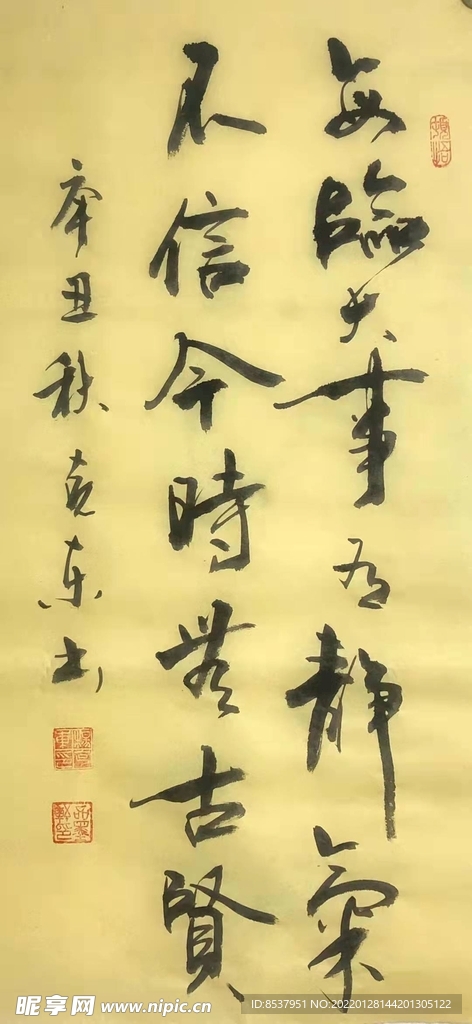 每臨大事有静氣
不信今時無古賢
辛丑秋克东书
昵享网 www.nipic.cn
ID:8537951 NO:20220128144201305122